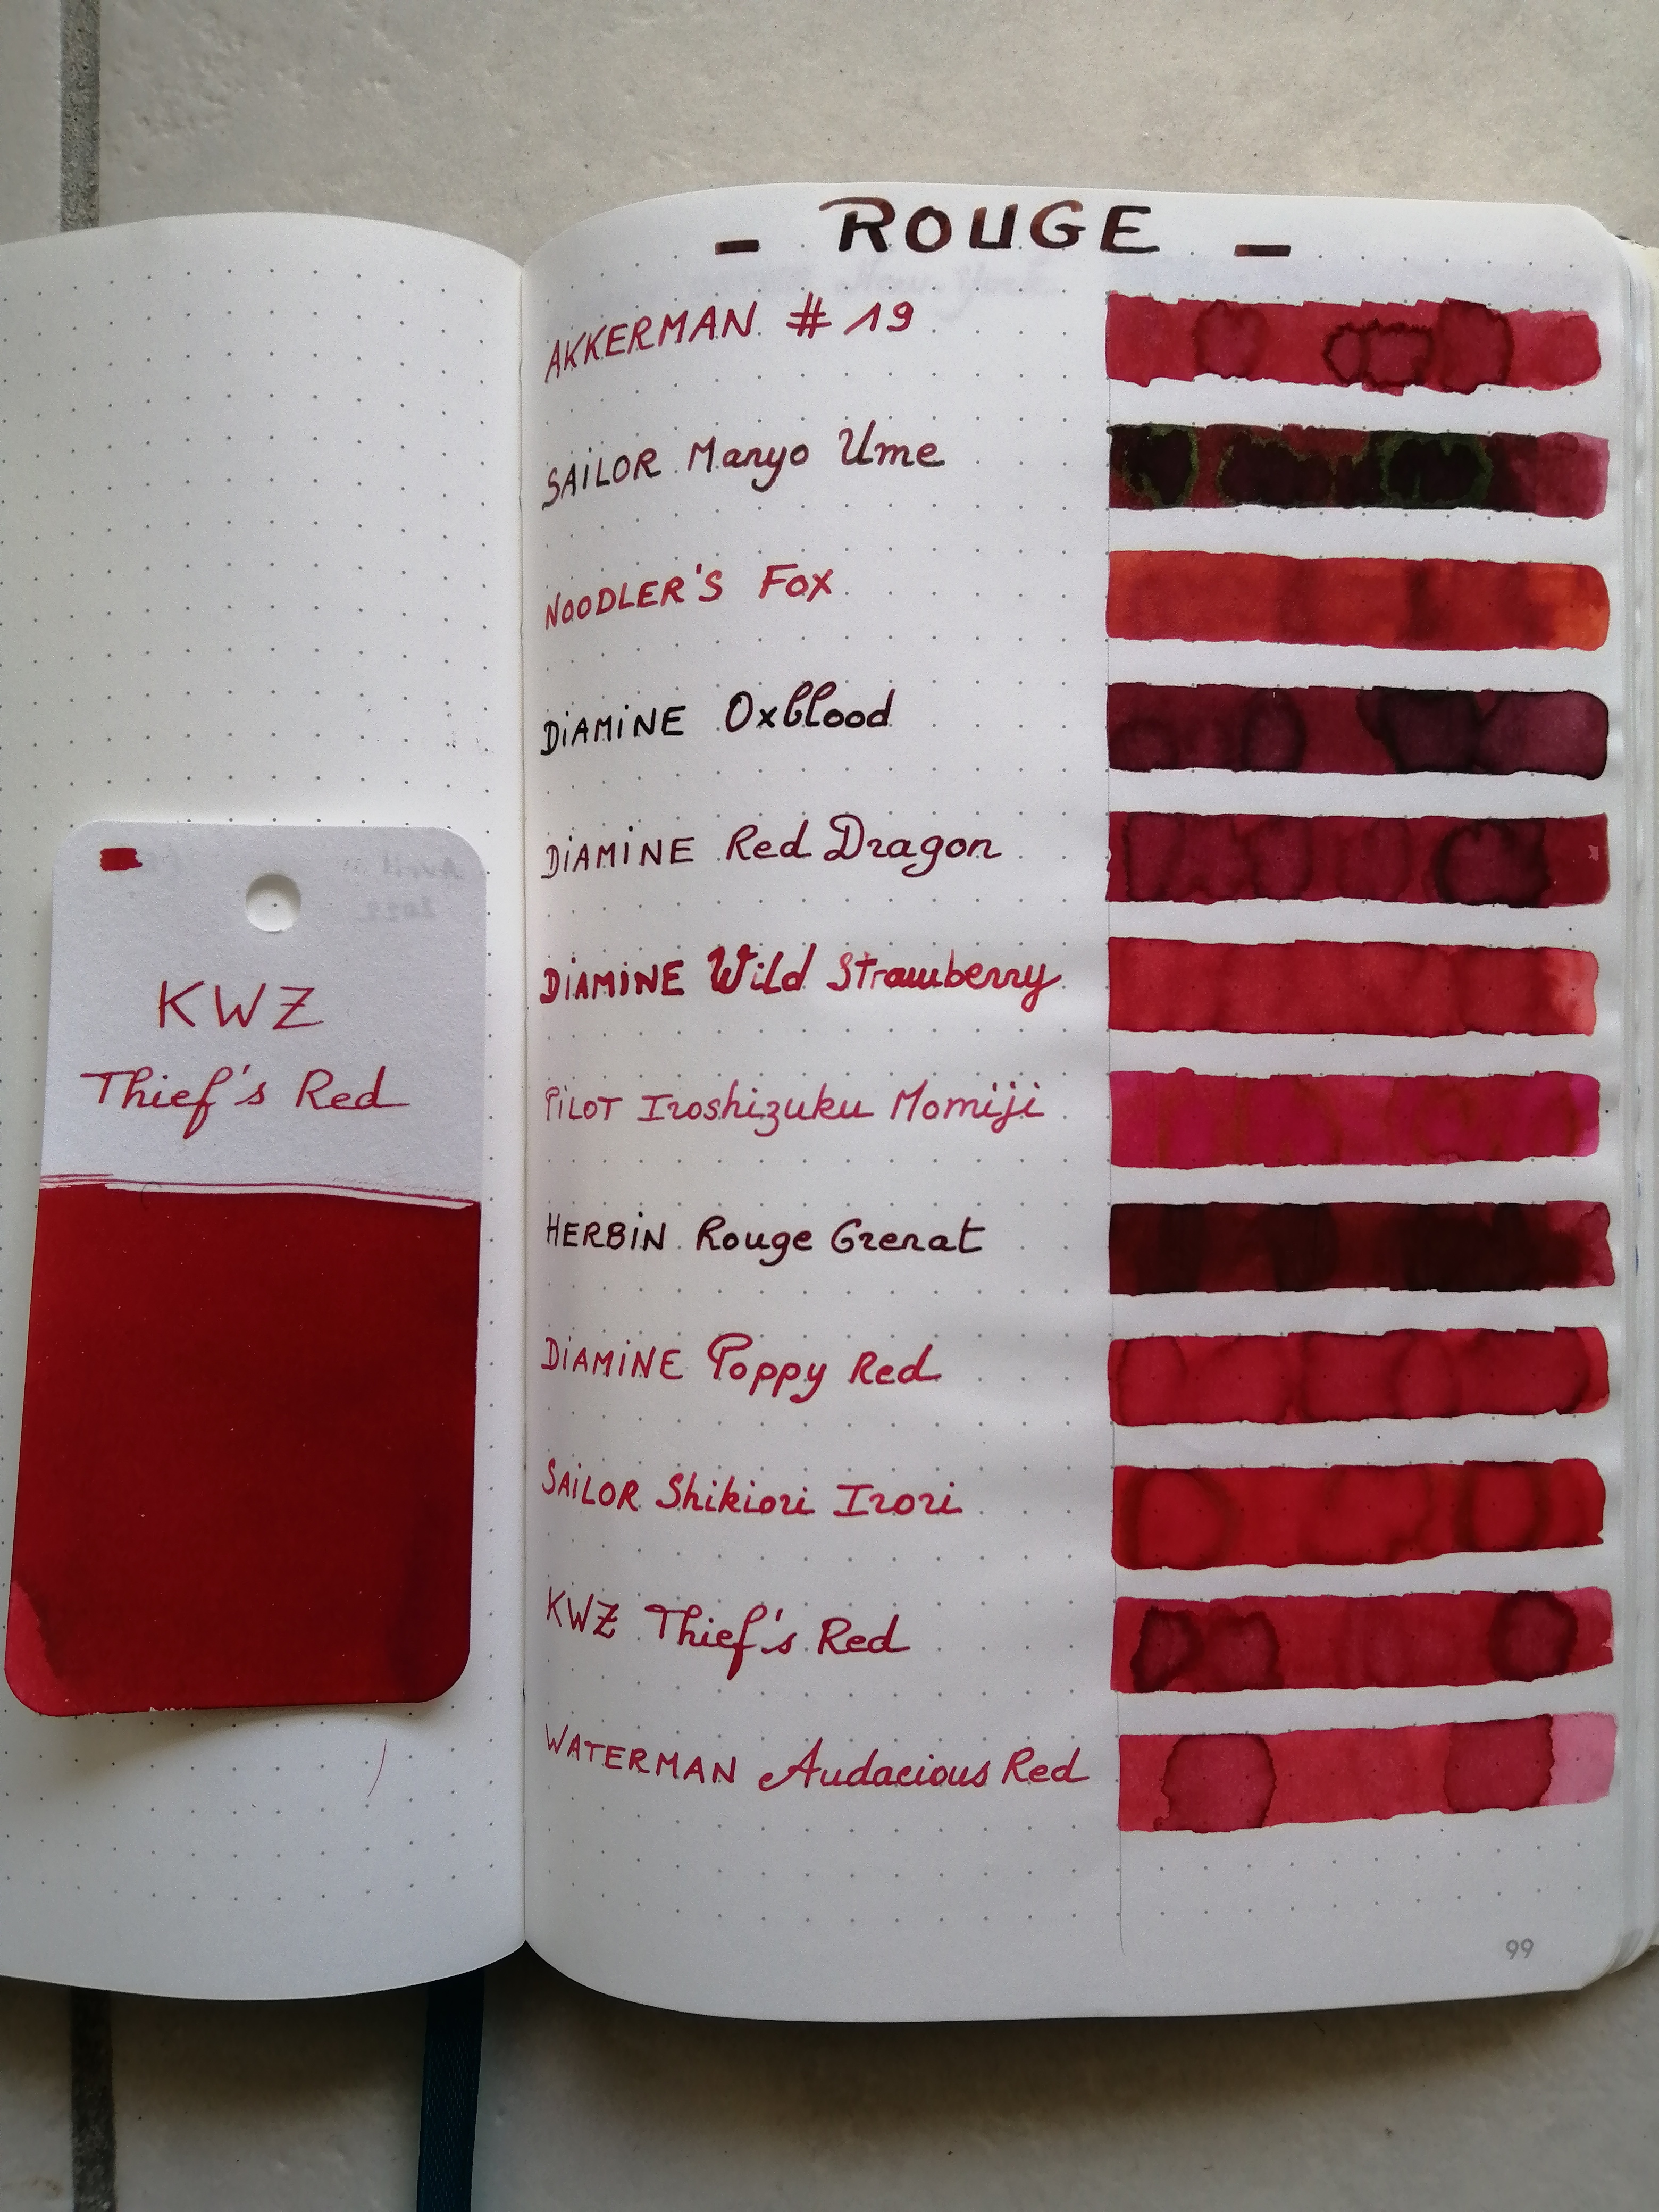 - ROUGE -
AKKERMAN # 19
SAILOR Manyo Ume
NOODLER'S Fox
DIAMINE Oxblood
DIAMINE Red Dragon
DIAMINE Wild Strawberry
PILOT Iroshizuku Momiji
HERBIN Rouge Grenat
DIAMINE Poppy Red
SAILOR Shikiori Irori
KWZ Thief's Red
WATERMAN Audacious Red
99
KWZ
Thief's Red